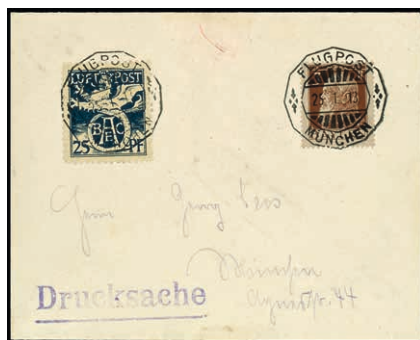 FLUGPOST
LUFTPOST
BAEC
25 PF
FLUGPOST
MÜNCHEN
Herrn Georg
München
Agnesstr. 44
Drucksache